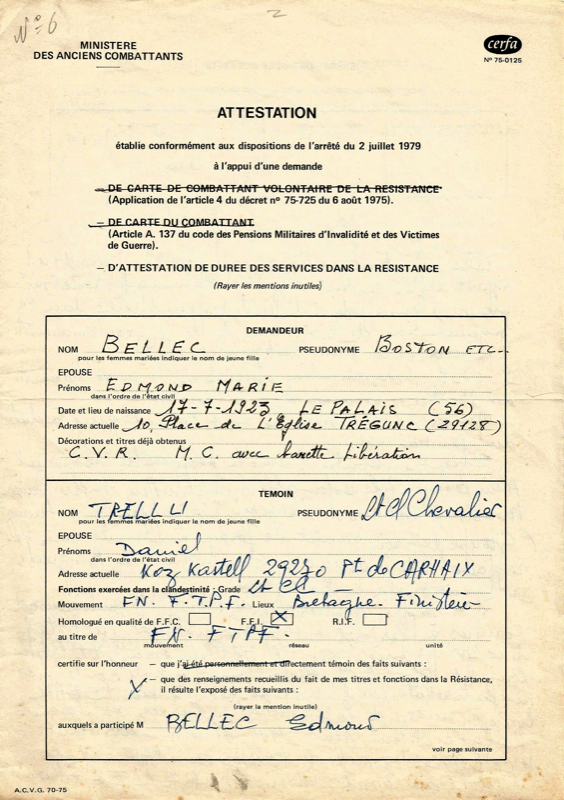 N° 6
MINISTERE
DES ANCIENS COMBATTANTS
cerfa
N° 75-0125
ATTESTATION
établie conformément aux dispositions de l'arrêté du 2 juillet 1979
à l'appui d'une demande
— DE CARTE DE COMBATTANT VOLONTAIRE DE LA RESISTANCE
(Application de l'article 4 du décret n° 75-725 du 6 août 1975).
— DE CARTE DU COMBATTANT
(Article A. 137 du code des Pensions Militaires d'Invalidité et des Victimes
de Guerre).
— D'ATTESTATION DE DUREE DES SERVICES DANS LA RESISTANCE
(Rayer les mentions inutiles)
DEMANDEUR
NOM BELLEC PSEUDONYME BOSTON ETC..
pour les femmes mariées indiquer le nom de jeune fille
EPOUSE
Prénoms EDMOND MARIE
dans l'ordre de l'état civil
Date et lieu de naissance 17-7-1923 LE PALAIS (56)
Adresse actuelle 10, Place de L'Eglise TRÉGUNC (29128)
Décorations et titres déjà obtenus
C.V.R. M.C. avec barette Libération
TEMOIN
NOM TRELLLI PSEUDONYME Lt Cl Chevalier
pour les femmes mariées indiquer le nom de jeune fille
EPOUSE
Prénoms Daniel
dans l'ordre de l'état civil
Adresse actuelle Koz Kastell 29270 Pt de CARHAIX
Fonctions exercées dans la clandestinité : Grade Lt Cl
Mouvement FN. F.T.P.F. Lieux Bretagne - Finistère
Homologué en qualité de F.F.C. F.F.I. X R.I.F.
au titre de FN. FTPF.
mouvement réseau unité
certifie sur l'honneur — que j'ai été personnellement et directement témoin des faits suivants :
X — que des renseignements recueillis du fait de mes titres et fonctions dans la Résistance,
il résulte l'exposé des faits suivants :
(rayer la mention inutile)
auxquels a participé M BELLEC Edmond
voir page suivante
A.C.V.G. 70-75